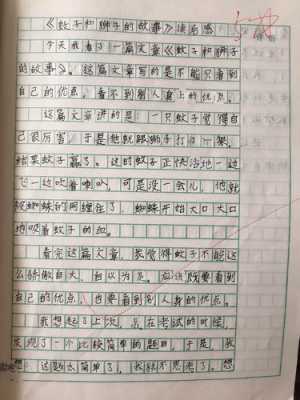 《蚊子和狮子的故事》读后感
今天我看了一篇文章《蚊子和狮子
的故事》。这篇文章写的是不能只看到
自己的优点，看不到别人身上的优点。
这篇文章讲的是：一只蚊子觉得自
己很厉害，于是他就跟狮子打了一架，
结果蚊子赢了。这时蚊子正快活地一边
飞一边吹着喇叭，可是没一会儿，他就
被蜘蛛的网缠住了，蜘蛛开始大口大口
地吸着蚊子的血。
看完这篇文章，我觉得蚊子不能这
么骄傲自大，自以为是。应该既要看到
自己的优点，也要看到别人身的优点。
我想起了上次，我在考试的时候，
发现了一个比较简单的题目，于是，我
想：这题太简单了，我就不思考了。